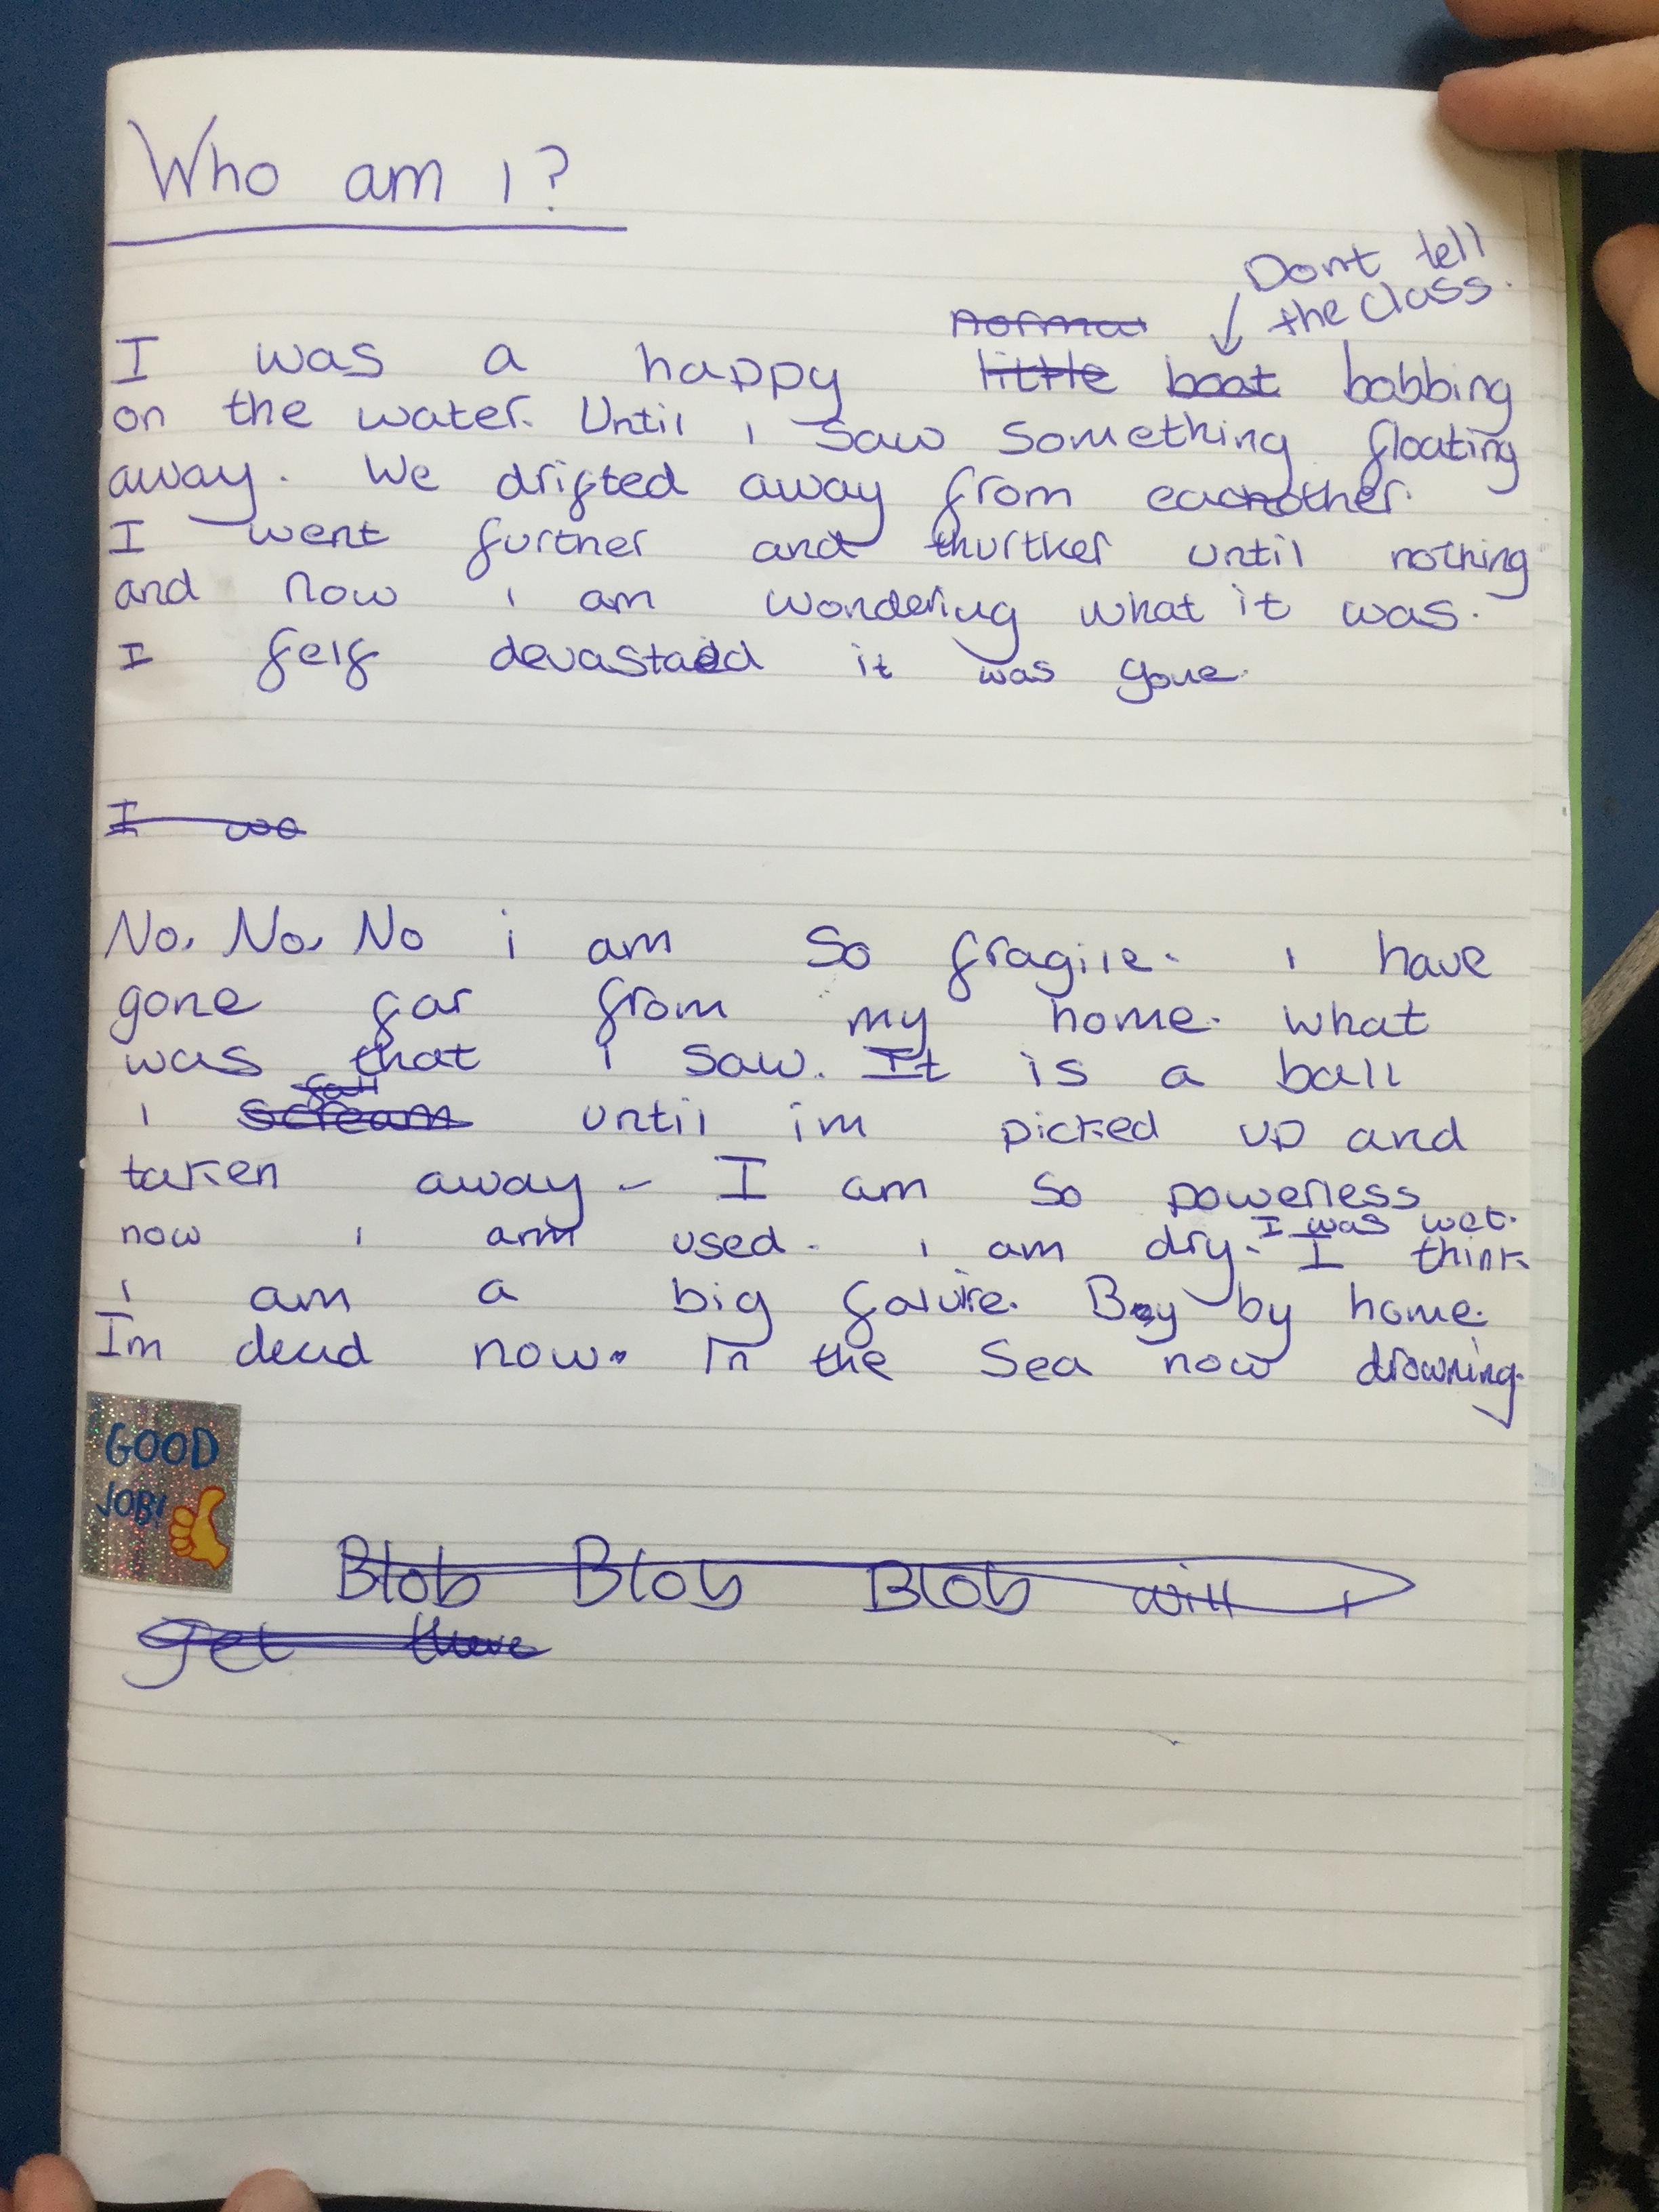 Who am I?
Dont tell
the class.
normal
I was a happy little boat bobbing
on the water. Until i saw something floating
away. We drifted away from eachother.
I went further and thurther until nothing
and now i am wondering what it was.
I felf devastaed it was gone.
I wa
No, No, No i am so fragile. i have
gone far from my home. what
was that i saw. It is a ball
fall
i scream until im picked up and
taken away - I am so powerless
I was wet.
now i am used. i am dry. I think
i am a big faluire. Bay by home.
Im dead now. In the Sea now drowning.
GOOD
JOB!
Blob Blob Blob will I
get there